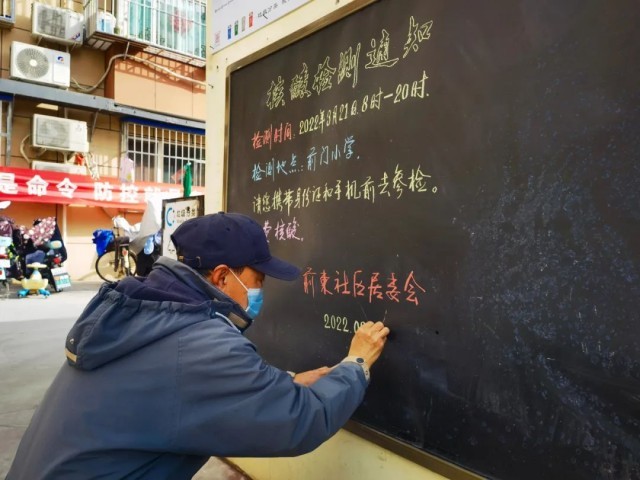 核酸检测通知
检测时间:2022年3月21日8时—20时.
检测地点:前门小学.
请您携带身份证和手机前去参检。
核酸
前東社区居委会
2022.0
是命令 防控